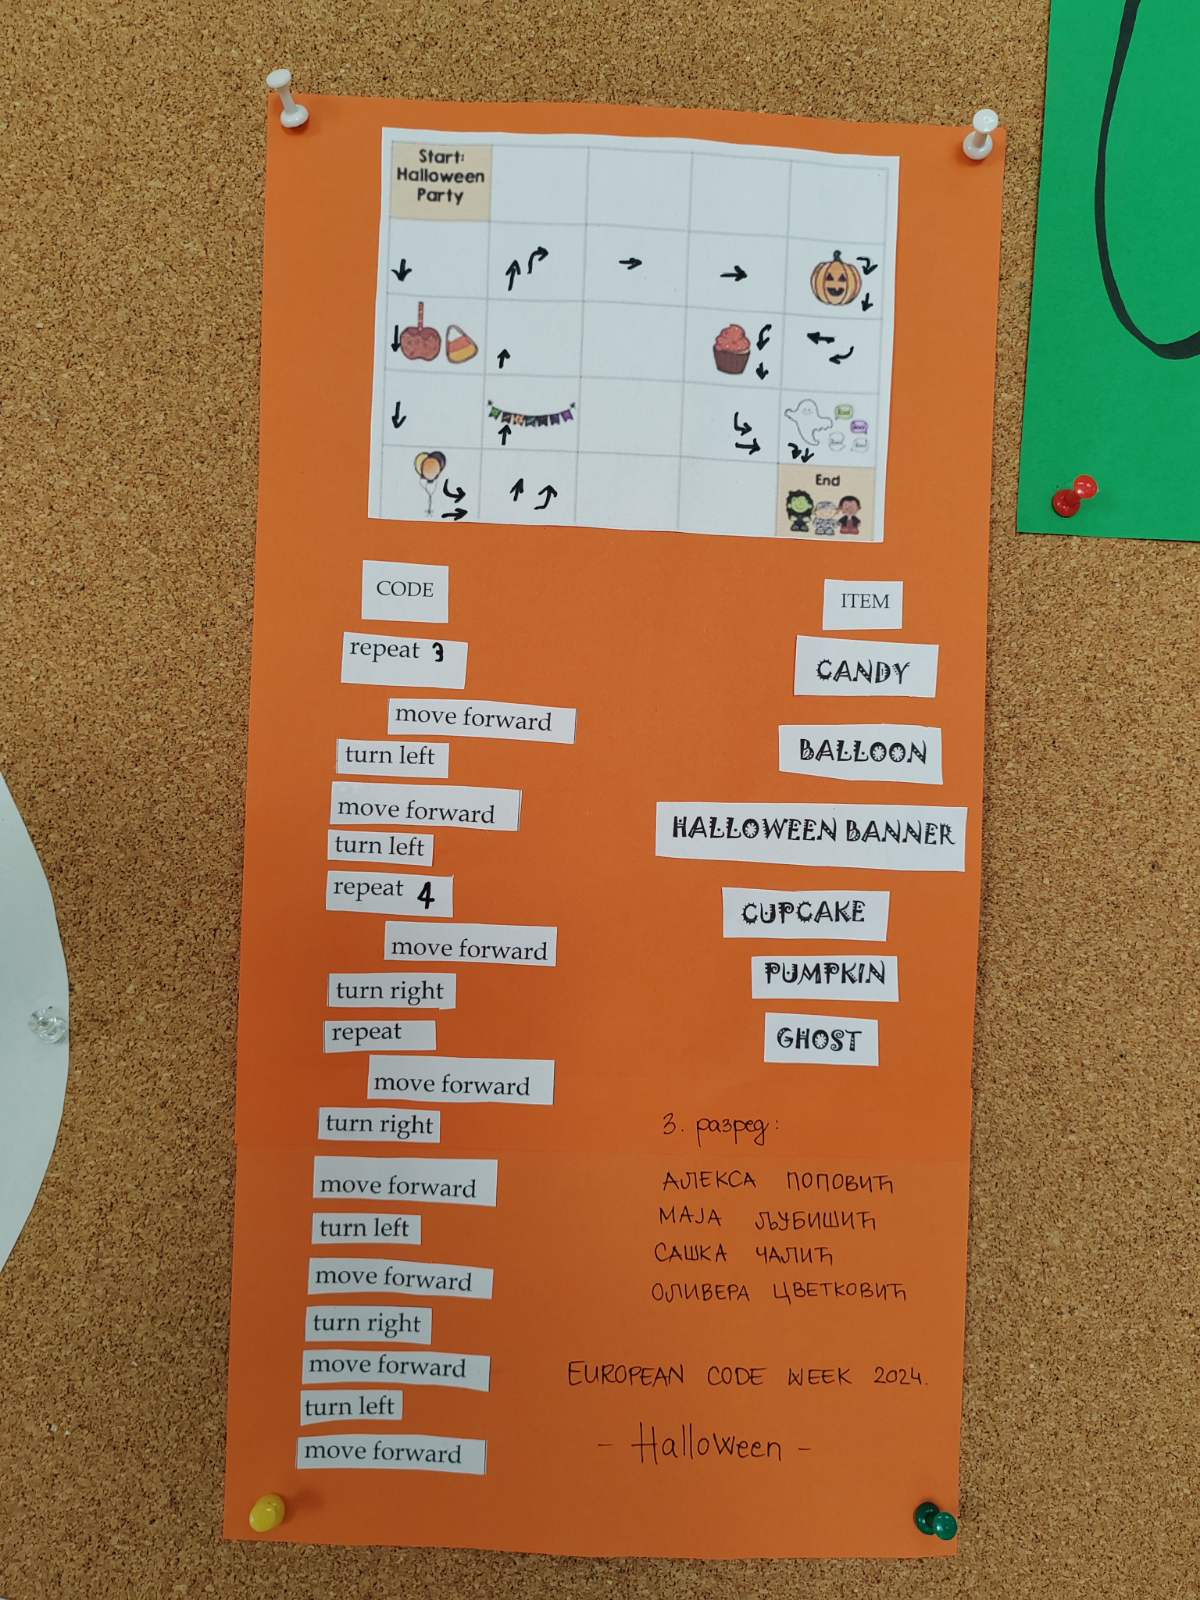 Start:
Halloween
Party
End
CODE
repeat 3
move forward
turn left
move forward
turn left
repeat 4
move forward
turn right
repeat
move forward
turn right
move forward
turn left
move forward
turn right
move forward
turn left
move forward
ITEM
CANDY
BALLOON
HALLOWEEN BANNER
CUPCAKE
PUMPKIN
GHOST
3. разред:
АЛЕКСА ПОПОВИЋ
МАЈА ЉУБИШИЋ
САШКА ЧАЛИЋ
ОЛИВЕРА ЦВЕТКОВИЋ
EUROPEAN CODE WEEK 2024.
- Halloween -